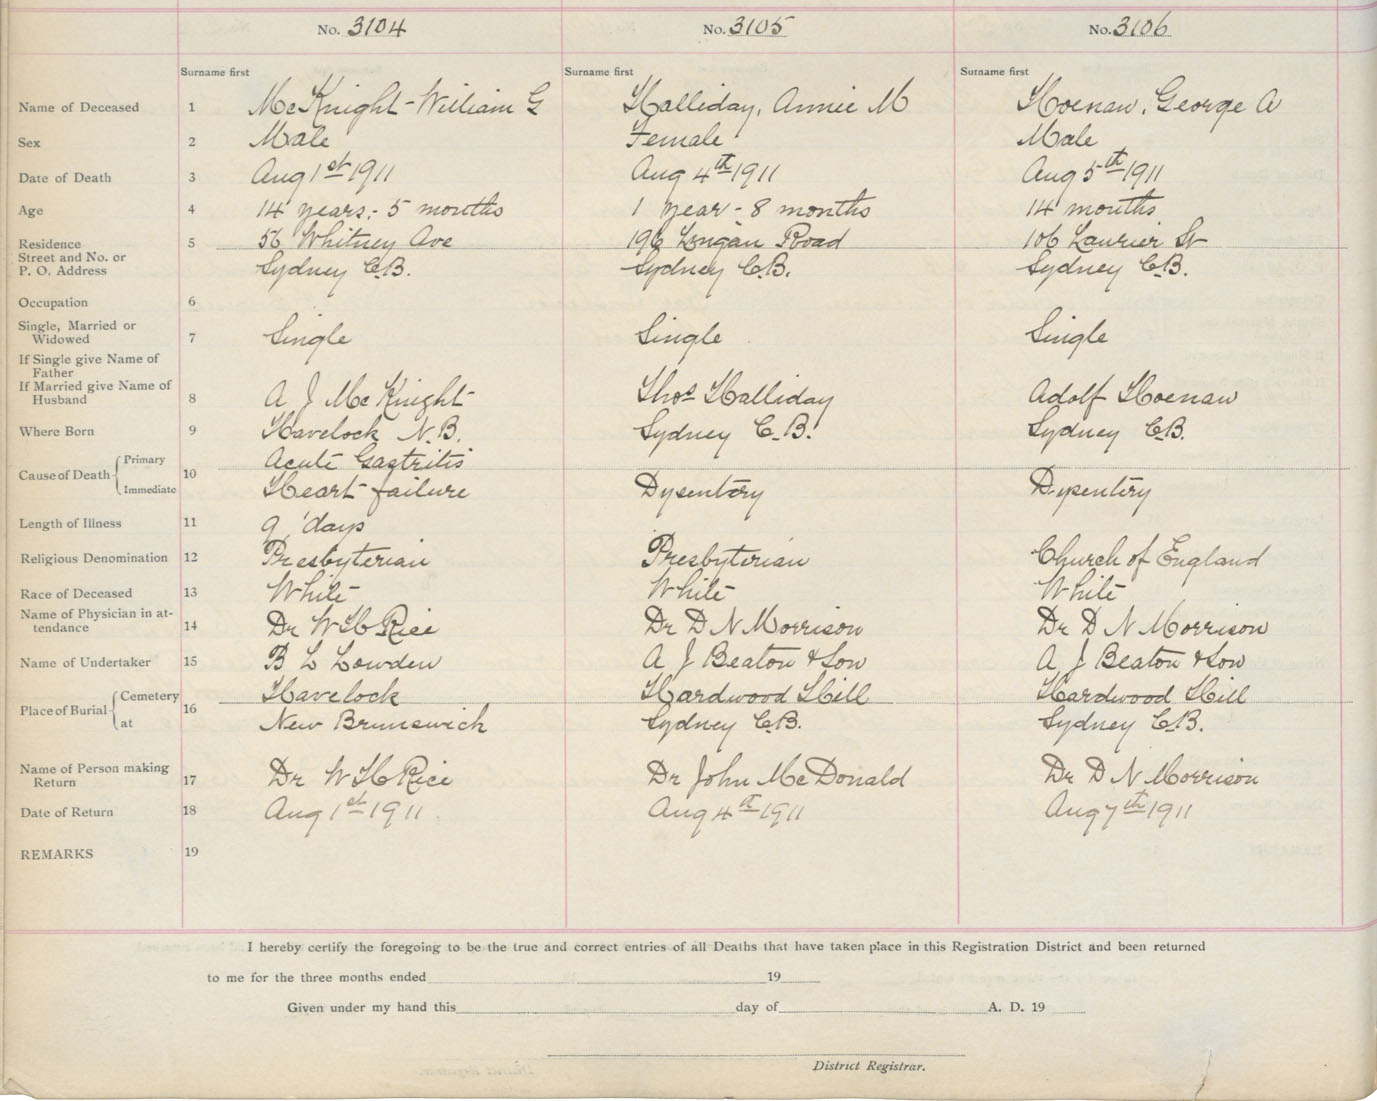 No. 3104 No. 3105 No. 3106
Surname first Surname first Surname first
Name of Deceased 1 McKnight - William G Halliday, Annie M Hoenaw, George A
Sex 2 Male Female Male
Date of Death 3 Aug 1st 1911 Aug 4th 1911 Aug 5th 1911
Age 4 14 years - 5 months 1 year - 8 months 14 months
Residence 5 56 Whitney Ave 196 Lingan Road 106 Laurier St
Street and No. or
P. O. Address Sydney C.B. Sydney C.B. Sydney C.B.
Occupation 6
Single, Married or
Widowed 7 Single Single Single
If Single give Name of
Father
If Married give Name of
Husband 8 A J McKnight Thos Halliday Adolf Hoenaw
Where Born 9 Havelock N.B. Sydney C.B. Sydney C.B.
Primary Acute Gastritis
Cause of Death 10
Immediate Heart failure Dysentery Dysentery
Length of Illness 11 9 days
Religious Denomination 12 Presbyterian Presbyterian Church of England
Race of Deceased 13 White White White
Name of Physician in at-
tendance 14 Dr W H Rice Dr D N Morrison Dr D N Morrison
Name of Undertaker 15 B L Lowden A J Beaton & Son A J Beaton & Son
Cemetery Havelock Hardwood Hill Hardwood Hill
Place of Burial 16
at New Brunswick Sydney C.B. Sydney C.B.
Name of Person making
Return 17 Dr W H Rice Dr John McDonald Dr D N Morrison
Date of Return 18 Aug 1st 1911 Aug 4th 1911 Aug 7th 1911
REMARKS 19
I hereby certify the foregoing to be the true and correct entries of all Deaths that have taken place in this Registration District and been returned
to me for the three months ended 19
Given under my hand this day of A. D. 19
District Registrar.